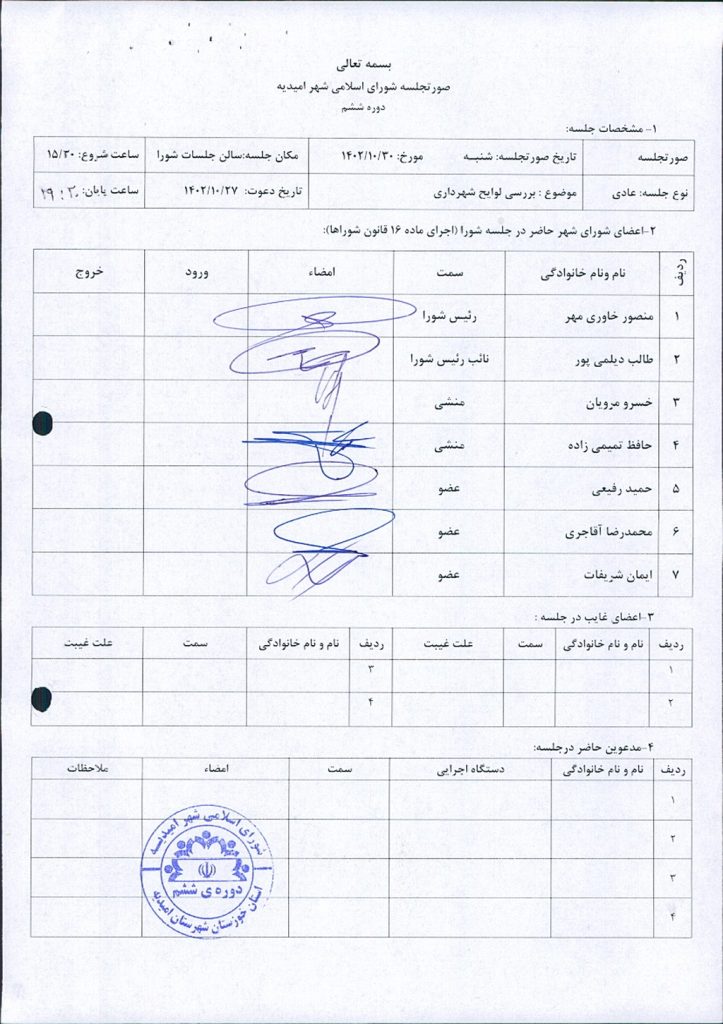 بسمه تعالی
صورتجلسه شورای اسلامی شهر امیدیه
دوره ششم
۱- مشخصات جلسه:
صورتجلسه تاریخ صورتجلسه: شنبـه مورخ: ۱۴۰۲/۱۰/۳۰ مکان جلسه:سالن جلسات شورا ساعت شروع: ۱۵/۳۰
نوع جلسه: عادی موضوع : بررسی لوایح شهرداری تاریخ دعوت: ۱۴۰۲/۱۰/۲۷ ساعت پایان: ۱۹:۳۰
۲-اعضای شورای شهر حاضر در جلسه شورا (اجرای ماده ۱۶ قانون شوراها):
ردیف نام ونام خانوادگی سمت امضاء ورود خروج
۱ منصور خاوری مهر رئیس شورا
۲ طالب دیلمی پور نائب رئیس شورا
۳ خسرو مرویان منشی
۴ حافظ تمیمی زاده منشی
۵ حمید رفیعی عضو
۶ محمدرضا آقاجری عضو
۷ ایمان شریفات عضو
۳-اعضای غایب در جلسه :
ردیف نام و نام خانوادگی سمت علت غیبت ردیف نام و نام خانوادگی سمت علت غیبت
۱ ۳
۲ ۴
۴-مدعوین حاضر درجلسه:
ردیف نام و نام خانوادگی دستگاه اجرایی سمت امضاء ملاحظات
۱
۲
۳
۴
شورای اسلامی شهر امیدیه
دوره ی ششم
استان خوزستان شهرستان امیدیه